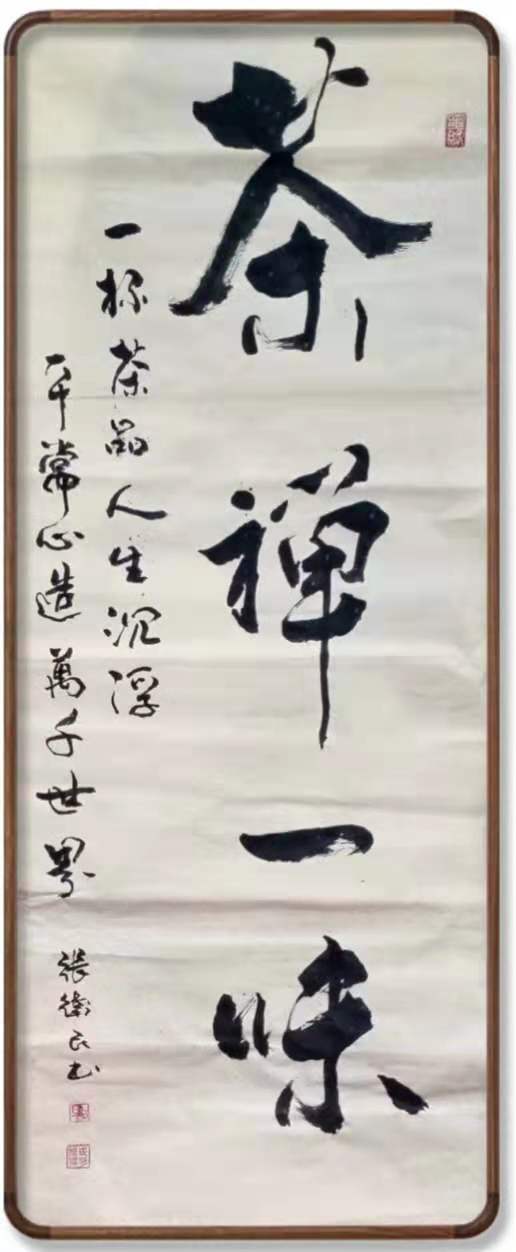 茶禅一味
一杯茶品人生沉浮
平常心造萬千世界
張衛民書